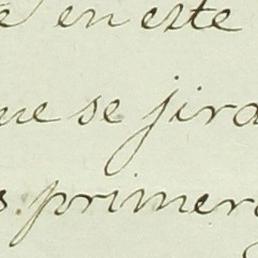 e en este
ue se jira
s. primera